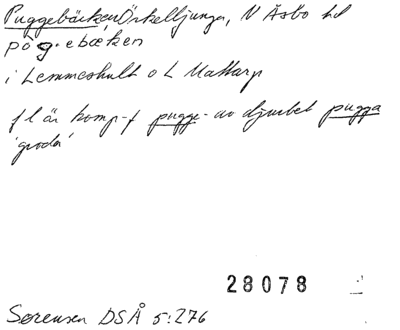 Puggebäcken Örkelljunga, N Åsbo hd
pög.ebæken
i Lemmeshult o L Mattarp
fl är komp-f pugge- av djurbet pugga
'groda'
28078
Sørensen DSÅ 5:276